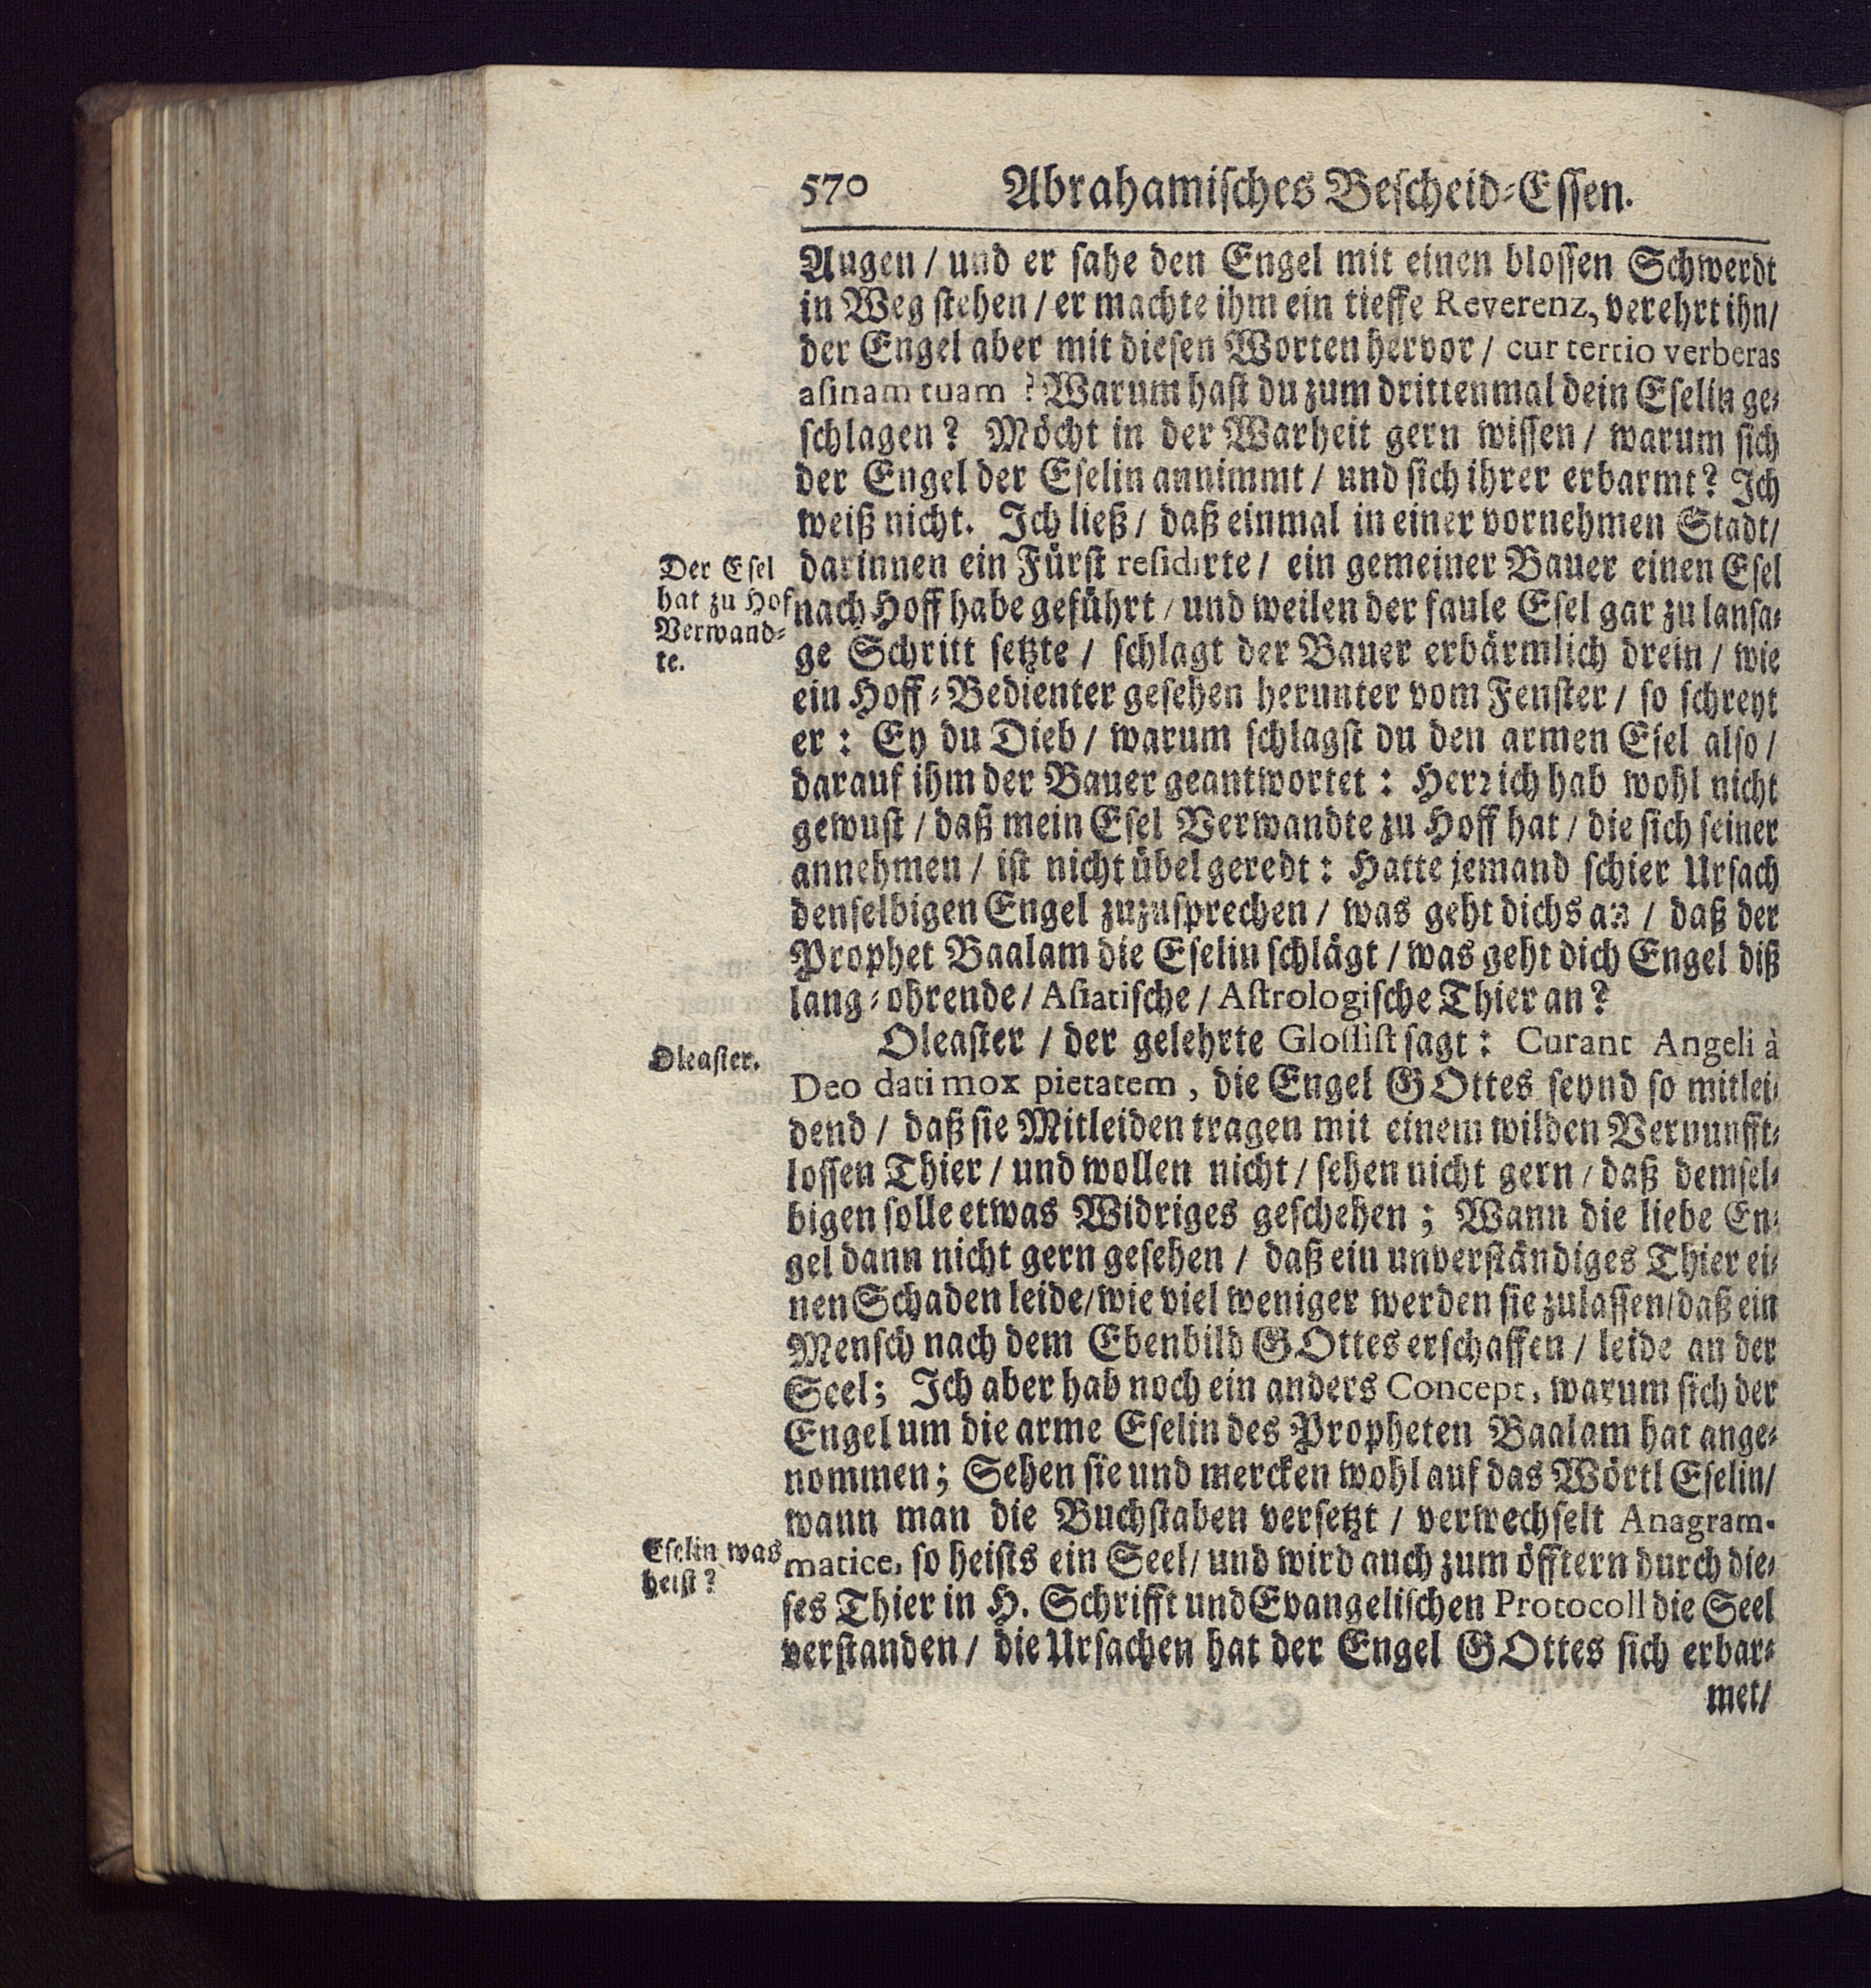 570 Abrahamisches Bescheid-Essen.
Augen / und er sahe den Engel mit einen blossen Schwerdt
in Weg stehen / er machte ihm ein tieffe Reverenz, verehrt ihn /
der Engel aber mit diesen Worten hervor / cur tertio verberas
asinam tuam ? Warum hast du zum drittenmal dein Eselin ge-
schlagen? Möcht in der Warheit gern wissen / warum sich
der Engel der Eselin annimmt / und sich ihrer erbarmt? Ich
weiß nicht. Ich ließ / daß einmal in einer vornehmen Stadt /
darinnen ein Fürst residirte / ein gemeiner Bauer einen Esel
nach Hoff habe geführt / und weilen der faule Esel gar zu lansa-
ge Schritt setzte / schlagt der Bauer erbärmlich drein / wie
ein Hoff-Bedienter gesehen herunter vom Fenster / so schreyt
er: Ey du Dieb / warum schlagst du den armen Esel also /
darauf ihm der Bauer geantwortet: Herr ich hab wohl nicht
gewust / daß mein Esel Verwandte zu Hoff hat / die sich seiner
annehmen / ist nicht übel geredt: Hatte jemand schier Ursach
denselbigen Engel zuzusprechen / was geht dichs an / daß der
Prophet Baalam die Eselin schlägt / was geht dich Engel diß
lang-ohrende / Asiatische / Astrologische Thier an?
Oleaster / der gelehrte Glossist sagt: Curant Angeli à
Deo dati mox pietatem, die Engel GOttes seynd so mitlei-
dend / daß sie Mitleiden tragen mit einem wilden Vervunfft-
lossen Thier / und wollen nicht / sehen nicht gern / daß demsel-
bigen solle etwas Widriges geschehen; Wann die liebe En-
gel dann nicht gern gesehen / daß ein unverständiges Thier ei-
nen Schaden leide / wie viel weniger werden sie zulassen / daß ein
Mensch nach dem Ebenbild GOttes erschaffen / leide an der
Seel; Ich aber hab noch ein anders Concept, warum sich der
Engel um die arme Eselin des Propheten Baalam hat ange-
nommen; Sehen sie und mercken wohl auf das Wörtl Eselin /
wann man die Buchstaben versetzt / verwechselt Anagram-
matice, so heists ein Seel / und wird auch zum öfftern durch die-
ses Thier in H. Schrifft und Evangelischen Protocoll die Seel
verstanden / die Ursachen hat der Engel GOttes sich erbar-
met /
Der Esel
hat zu Hof
Verwand-
te.
Oleaster.
Eselin was
heist?